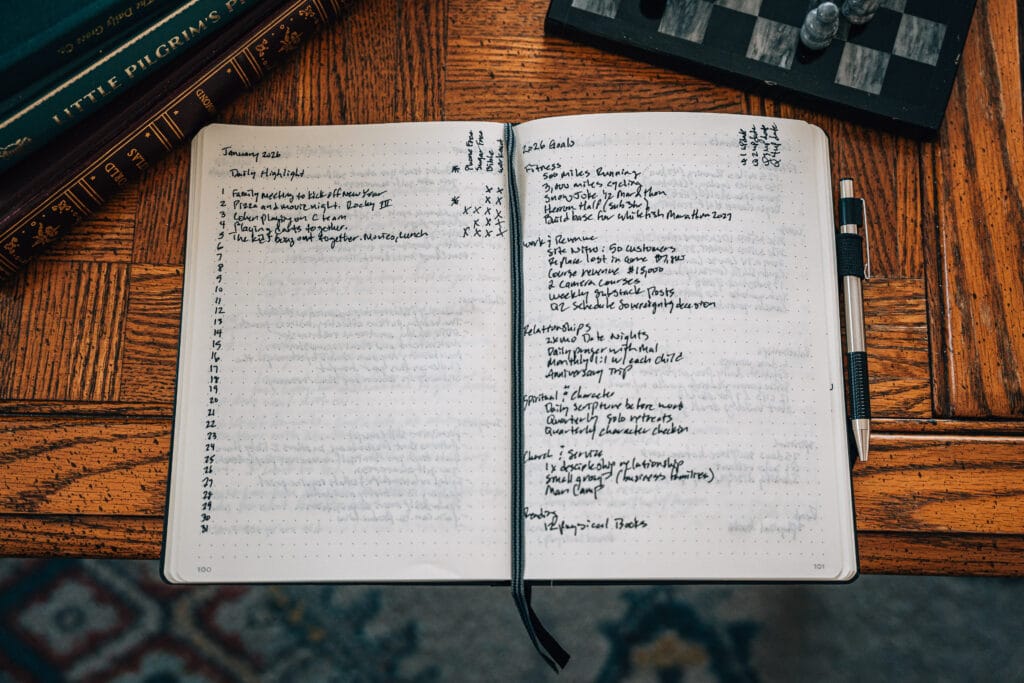 The Daily Grace Co.
LITTLE PILGRIM'S P
WORLD ATLAS
January 2026
Daily Highlight
Phone Free
Sugar Free
Bible
Workout
1 Family meeting to kick off new year x x
2 Pizza and movie night. Rocky III x x
3 playing on C team x x x x
4 Playing darts together. x x x
5 The kids hang out together. Movies, Lunch x x x x
6
7
8
9
10
11
12
13
14
15
16
17
18
19
20
21
22
23
24
25
26
27
28
29
30
31
100
2026 Goals
Fitness
500 Miles Running
3,000 miles cycling
Snow Joke 1/2 Marathon
Herron Half
Build base for Whitefish Marathon 2027
Work & Revenue
Site Nitro: 50 customers
Replace lost income
Course revenue $15,000
2 Camera courses
Weekly Substack Posts
Q2 Schedule Sovereignty decision
Relationships
2x MO Date Nights
Daily prayer with Mal
Monthly 1:1 w/ each child
Anniversary Trip
Spiritual & Character
Daily Scripture before work
Quarterly Solo retreats
Quarterly character checkin
Church & Service
1x discipleship relationship
Small group (business families)
Man Camp
Reading
12 physical Books
101